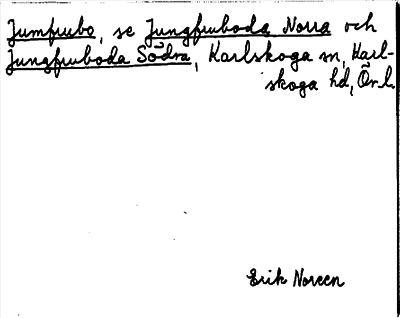 Jumfrubo, se Jungfruboda Norra och
Jungfruboda Södra, Karlskoga sn, Karl-
skoga hd, Ör. l.
Erik Noreen